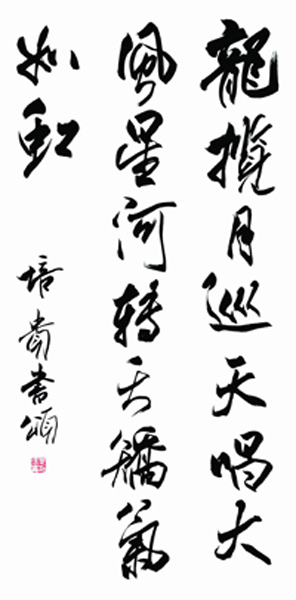 龍攬月巡天唱大
風星河轉夭矯氣
如虹
培貴書頌